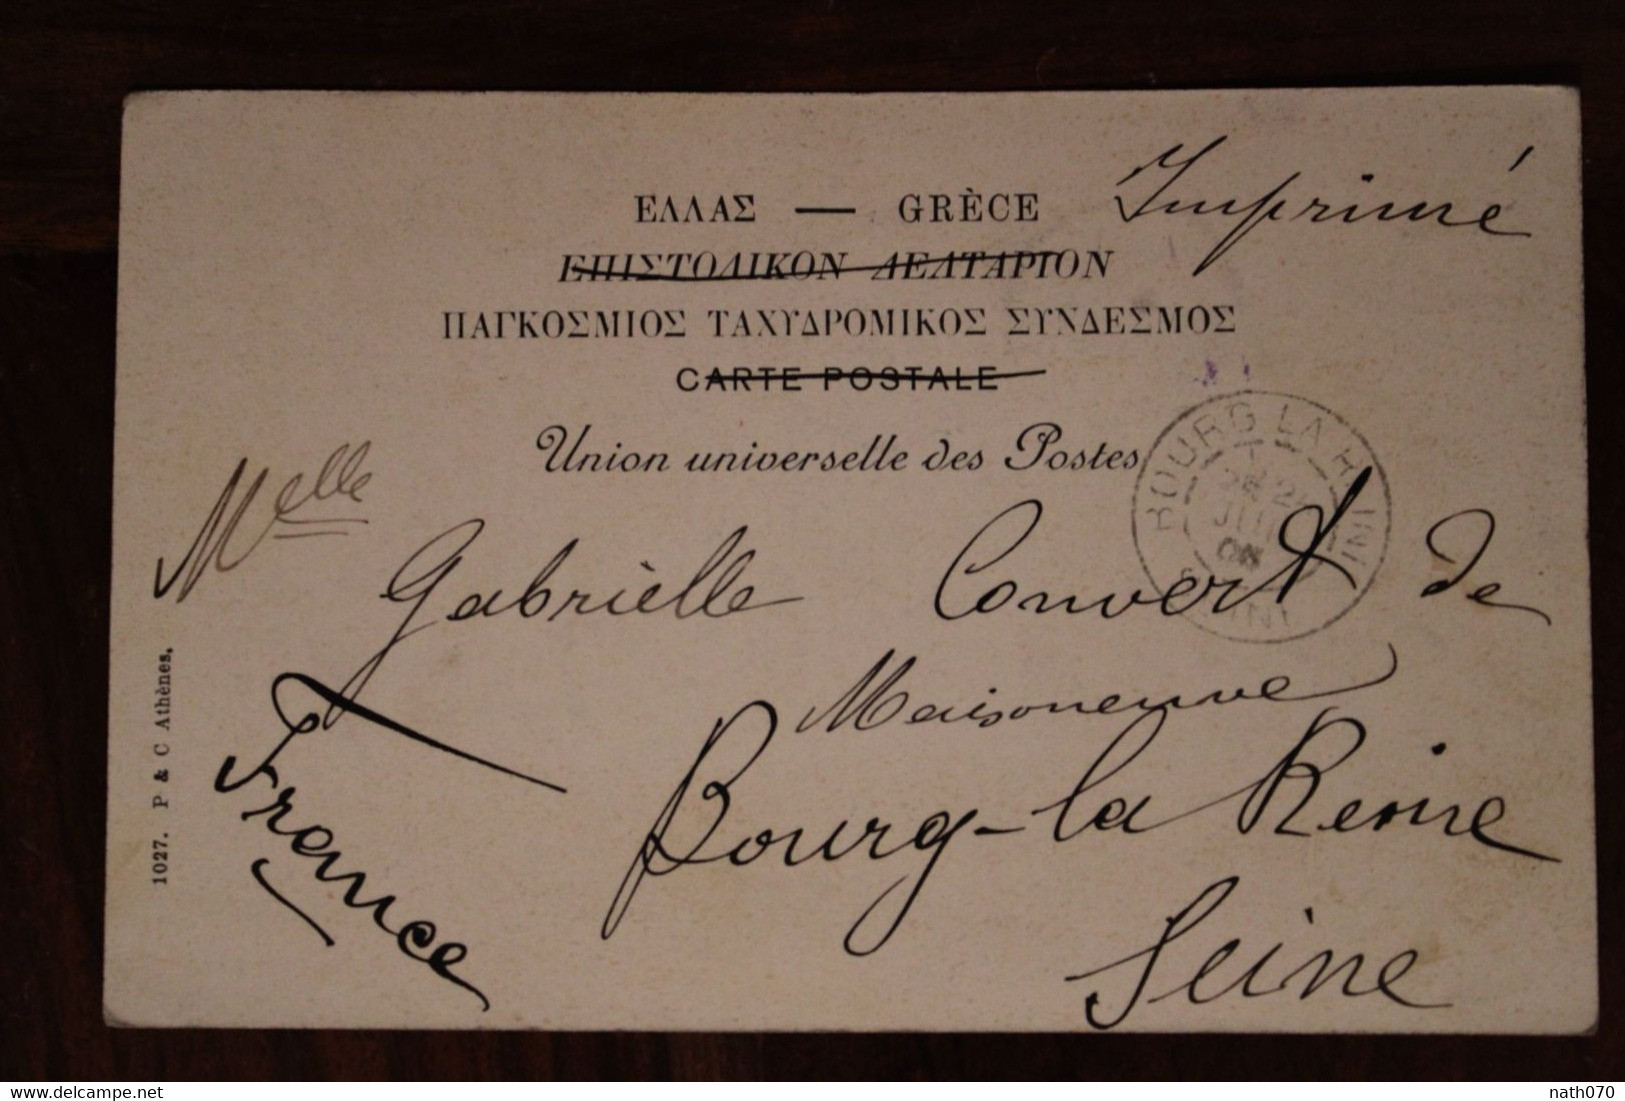 ΕΛΛΑΣ — GRÈCE
Imprimé
ΕΠΙΣΤΟΛΙΚΟΝ ΔΕΛΤΑΡΙΟΝ
ΠΑΓΚΟΣΜΙΟΣ ΤΑΧΥΔΡΟΜΙΚΟΣ ΣΥΝΔΕΣΜΟΣ
CARTE POSTALE
Union universelle des Postes
BOURG LA REINE
Melle
Gabrielle Convert de
Maisoneuve
Bourg-la Reine
Seine
France
1027. P & C Athènes.
delcampe.net
nath070